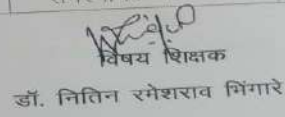 विषय शिक्षक
डॉ. नितिन रमेशराव भिंगारे